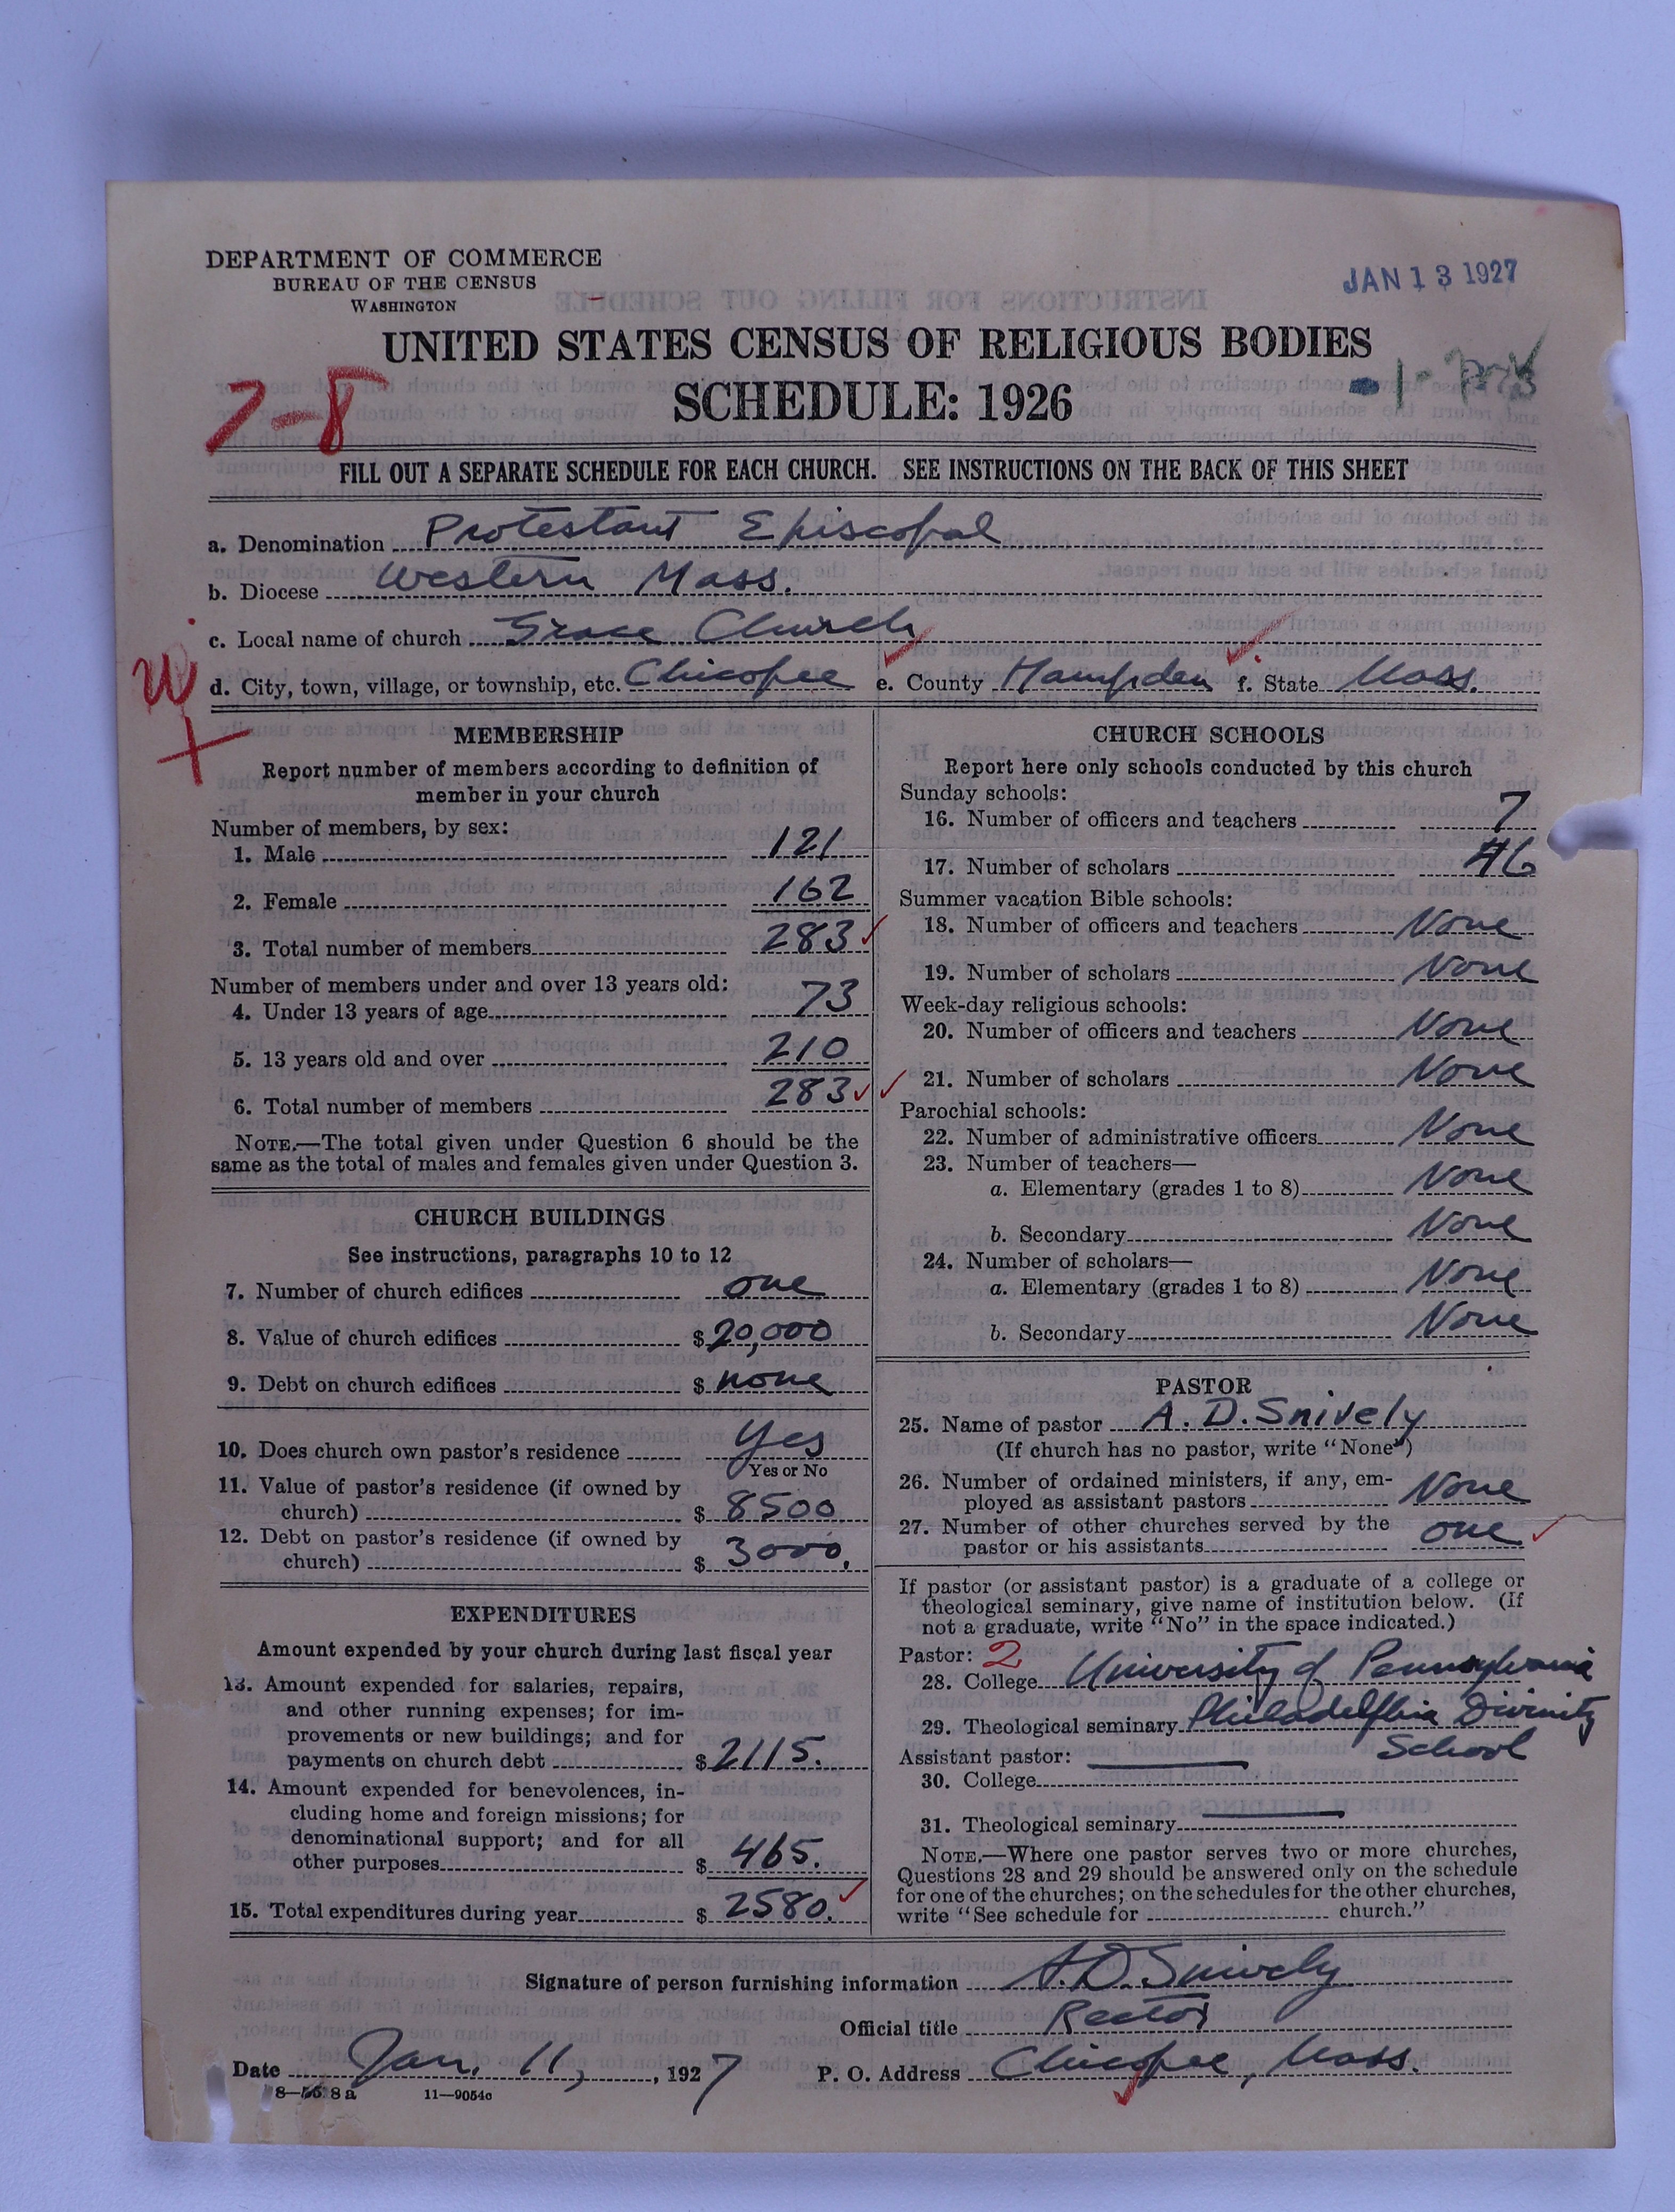 DEPARTMENT OF COMMERCE
BUREAU OF THE CENSUS
WASHINGTON
JAN 13 1927
UNITED STATES CENSUS OF RELIGIOUS BODIES
SCHEDULE: 1926
7-8
FILL OUT A SEPARATE SCHEDULE FOR EACH CHURCH. SEE INSTRUCTIONS ON THE BACK OF THIS SHEET
a. Denomination Protestant Episcopal
b. Diocese Western Mass.
c. Local name of church Grace Church
W
d. City, town, village, or township, etc. Chicopee e. County Hampden f. State Mass.
MEMBERSHIP
Report number of members according to definition of
member in your church
Number of members, by sex:
1. Male 121
2. Female 162
3. Total number of members 283
Number of members under and over 13 years old:
4. Under 13 years of age 73
5. 13 years old and over 210
6. Total number of members 283
NOTE.—The total given under Question 6 should be the
same as the total of males and females given under Question 3.
CHURCH BUILDINGS
See instructions, paragraphs 10 to 12
7. Number of church edifices one
8. Value of church edifices $20,000
9. Debt on church edifices $ none
10. Does church own pastor's residence Yes
Yes or No
11. Value of pastor's residence (if owned by
church) $ 8500
12. Debt on pastor's residence (if owned by
church) $ 3000.
EXPENDITURES
Amount expended by your church during last fiscal year
13. Amount expended for salaries, repairs,
and other running expenses; for im-
provements or new buildings; and for
payments on church debt $2115.
14. Amount expended for benevolences, in-
cluding home and foreign missions; for
denominational support; and for all
other purposes $ 465.
15. Total expenditures during year $ 2580.
CHURCH SCHOOLS
Report here only schools conducted by this church
Sunday schools:
16. Number of officers and teachers 7
17. Number of scholars 46
Summer vacation Bible schools:
18. Number of officers and teachers None
19. Number of scholars None
Week-day religious schools:
20. Number of officers and teachers None
21. Number of scholars None
Parochial schools:
22. Number of administrative officers None
23. Number of teachers—
a. Elementary (grades 1 to 8) None
b. Secondary None
24. Number of scholars—
a. Elementary (grades 1 to 8) None
b. Secondary None
PASTOR
25. Name of pastor A. D. Snively
(If church has no pastor, write "None")
26. Number of ordained ministers, if any, em-
ployed as assistant pastors None
27. Number of other churches served by the
pastor or his assistants one
If pastor (or assistant pastor) is a graduate of a college or
theological seminary, give name of institution below. (If
not a graduate, write "No" in the space indicated.)
Pastor: 2
28. College University of Pennsylvania
29. Theological seminary Philadelphia Divinity
School
Assistant pastor:
30. College
31. Theological seminary
NOTE.—Where one pastor serves two or more churches,
Questions 28 and 29 should be answered only on the schedule
for one of the churches; on the schedules for the other churches,
write "See schedule for church."
Signature of person furnishing information A. D. Snively
Official title Rector
Date Jan. 11, 1927 P. O. Address Chicopee, Mass.
8-558a 11-9054c